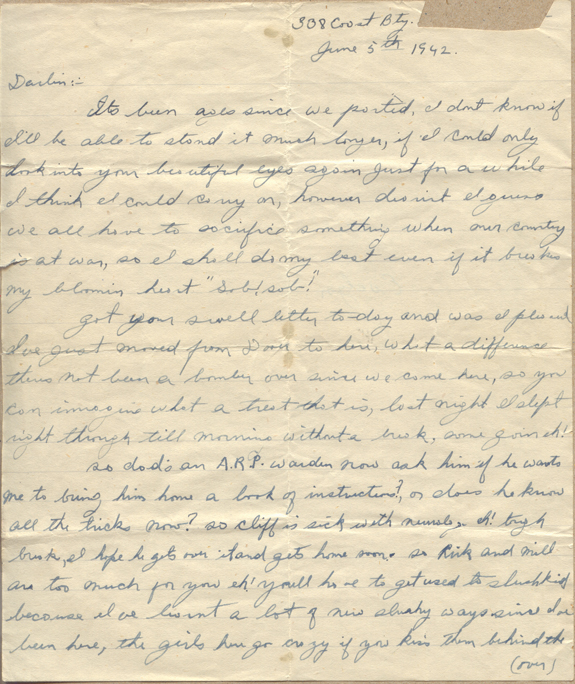 338 Coast Bty.
June 5th 1942.
Darlin:-
Its been ages since we parted, I dont know if
I'll be able to stand it much longer, if I could only
look into your beautiful eyes again just for a while
I think I could carry on, however I guess
we all have to sacrifice something when our country
is at war, so I shall do my best even if it breaks
my bloomin heart "Sob! sob!"
got your swell letter to-day and was I pleased
I've just moved from Dover to here, what a difference
theres not been a bomber over since we come here, so you
can immagine what a treat that is, last night I slept
right through till morning without a break, some goin eh!
so dad's an A.R.P. warden now ask him if he wants
me to bring him home a book of instructions?, or does he know
all the tricks now? so Cliff is sick with eh! tough
break, I hope he gets over it and gets home soon. so Rick and
are too much for you eh! you'll have to get used to
because I've learnt a lot of new slushy ways since I've
been here, the girls here go crazy if you kiss them behind the
(over)